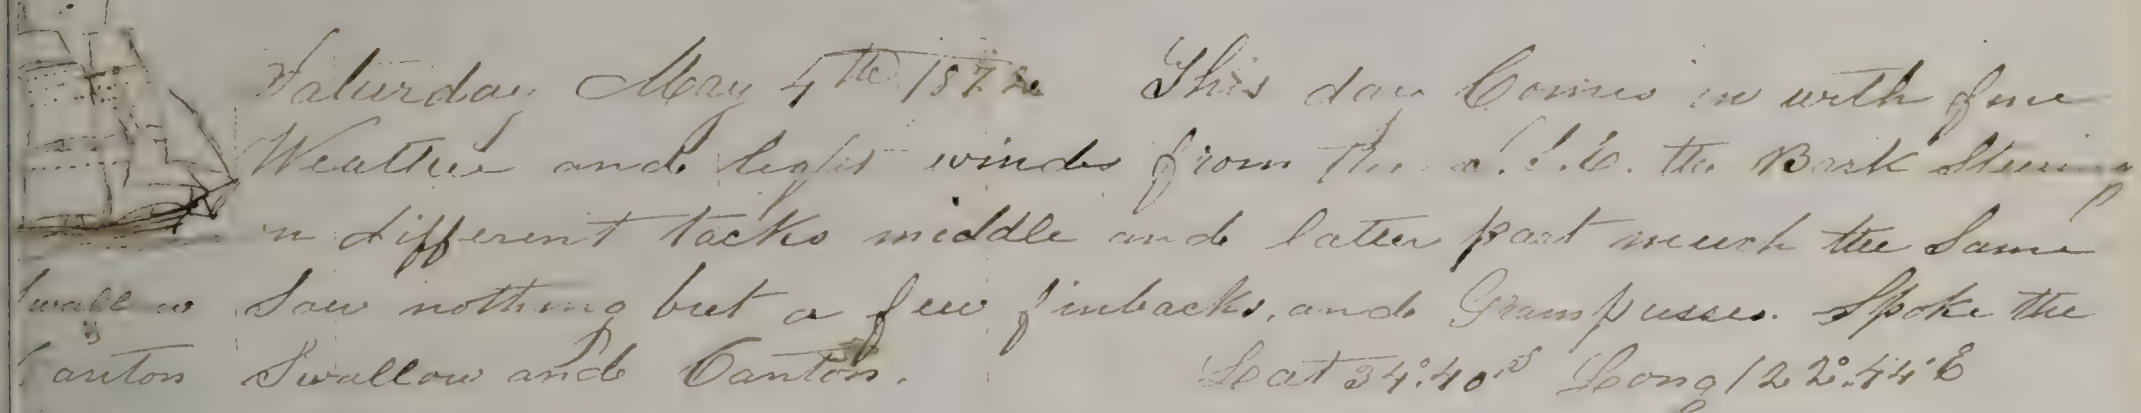 Saturday May 4th 1872 This day Comes in with fine
Weather and light winds from the S.E. the Bark Steering
in different tacks middle and latter part much the Same
Swallow Saw nothing but a few finbacks, and Grampusses. Spoke the
&
Canton Swallow and Canton. Lat 34°.40'S Long 122°.44'E